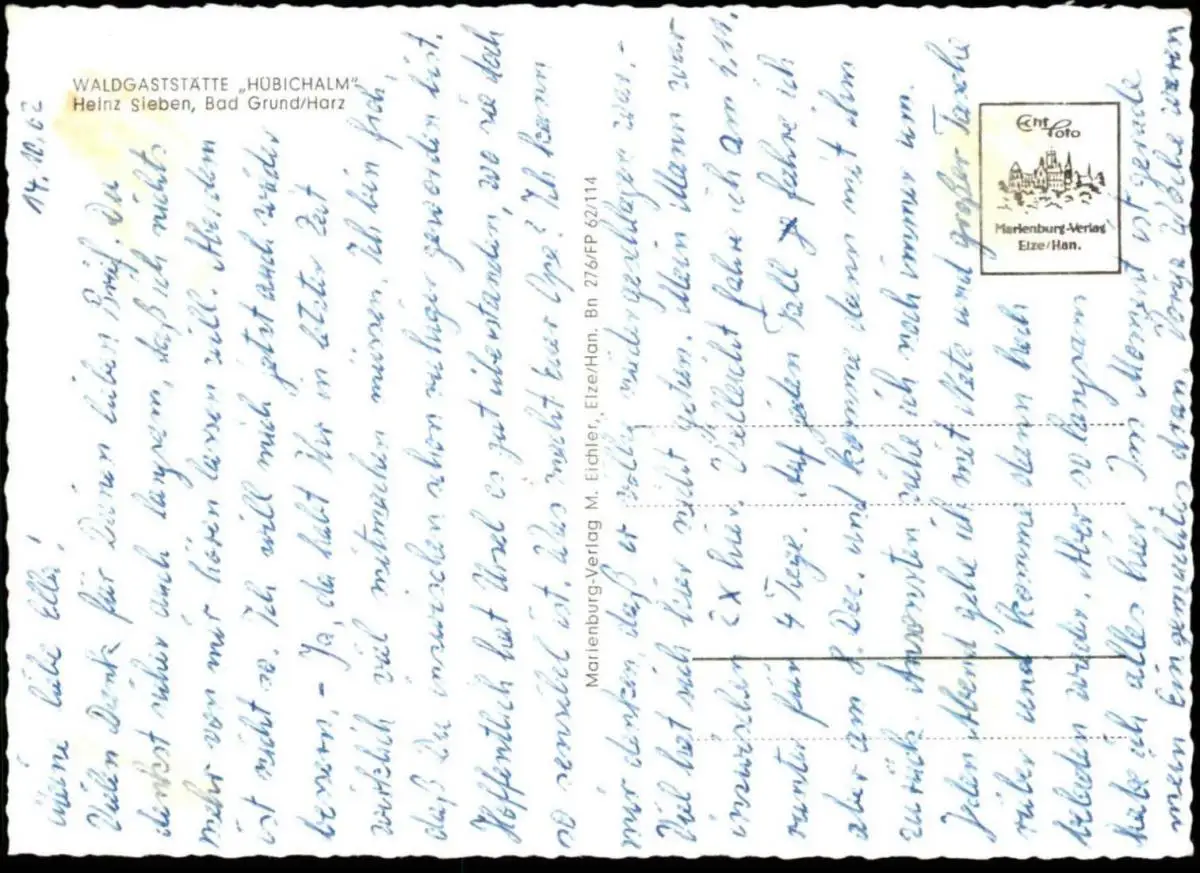 WALDGASTSTÄTTE „HÜBICHALM"
Heinz Sieben, Bad Grund/Harz
14.10.62
Meine liebe Elli!
Vielen Dank für Deinen lieben Brief. Du
denkst sicher auch langsam, daß ich nichts
mehr von mir hören lassen will. Aber dem
ist nicht so. Ich will mich jetzt auch wieder
bessern. - Ja, da habt Ihr in letzter Zeit
wirklich viel mitmachen müssen. Ich bin froh
daß Du inzwischen schon ruhiger geworden bist.
Hoffentlich hat Ursel es gut überstanden, wo sie doch
so sensibel ist. Was macht Euer Opa? Ich kann
mir denken, daß er völlig niedergeschlagen war. -
Viel hat sich hier nicht getan. Mein Mann war
inzwischen 2x hier. Vielleicht fahre ich am 1.11.
runter für 4 Tage. Auf jeden Fall fahre ich
aber am 8. Dez. und komme dann mit ihm
zurück. Ansonsten ziehe ich noch immer um.
Jeden Abend gehe ich mit Kiste und großer Tasche
rüber und komme dann hoch
beladen wieder. Aber so langsam
habe ich alles hier. Im Moment ist gerade
mein Eingemachtes dran. Vorige Woche waren
Marienburg-Verlag M. Eichler, Elze/Han. Bn 276/FP 62/114
Echt
Foto
Marienburg-Verlag
Elze/Han.